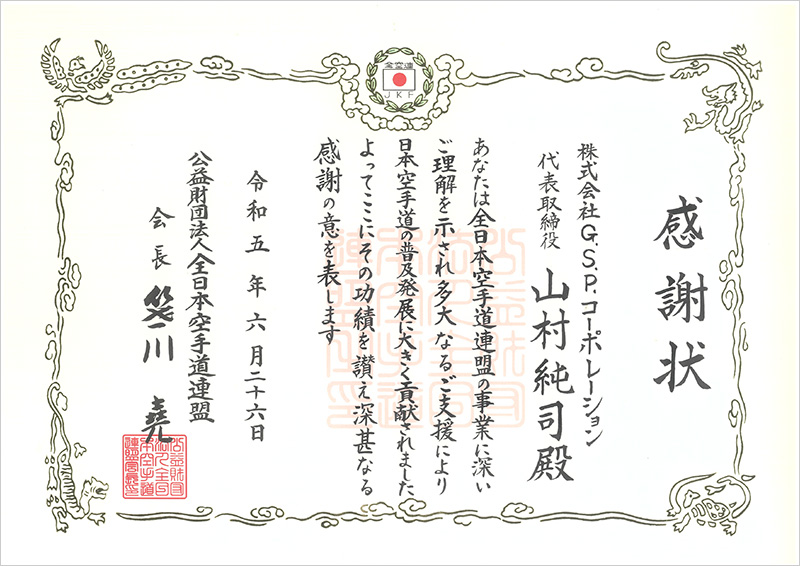 全空連
JKF
感謝状
株式会社G.S.P.コーポレーション
代表取締役 山村純司殿
あなたは全日本空手道連盟の事業に深い
ご理解を示され多大なるご支援により
日本空手道の普及発展に大きく貢献されました
よってここにその功績を讃え深甚なる
感謝の意を表します
令和五年六月二十六日
公益財団法人全日本空手道連盟
会長 笹川堯